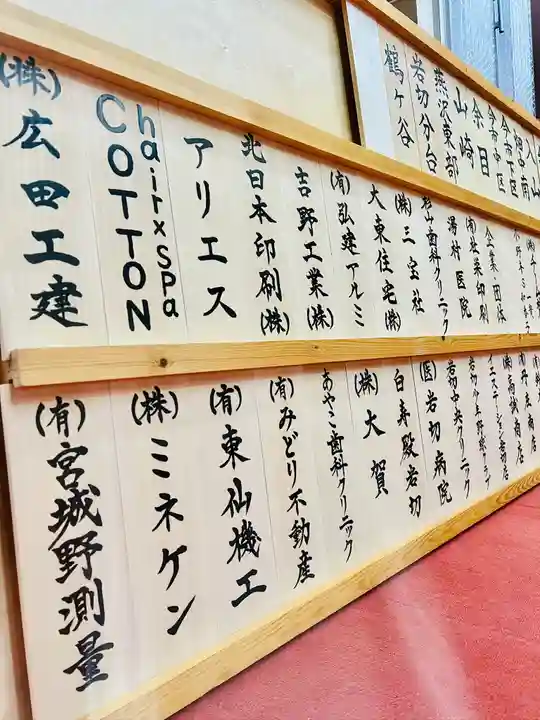 鶴ヶ谷
岩切分台
燕沢東部
山崎
余目
今市中区
今市下区
(株)広田工建
hair×spa COTTON
アリエス
北日本印刷(株)
吉野工業(株)
(有)弘建アルミ
大東住宅(株)
(株)三宝社
杉山歯科クリニック
湯村医院
(有)社栄印刷
企業団体
(有)宮城野測量
(株)ミネケン
(有)東仙機工
(有)みどり不動産
あやこ歯科クリニック
(株)大賀
白寿殿岩切
(医)岩切病院
岩切中央クリニック